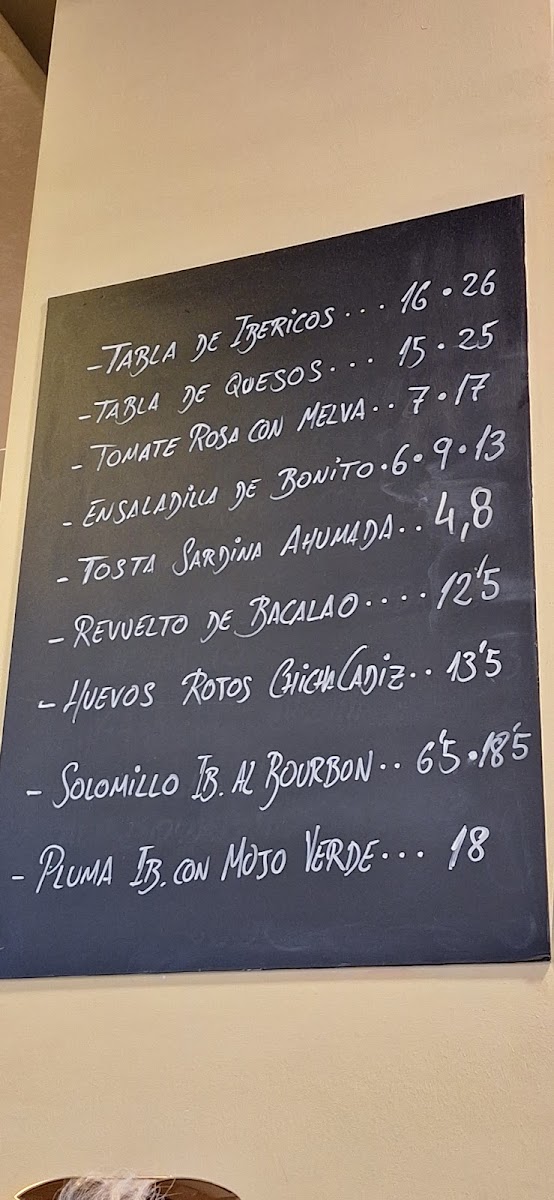 - TABLA DE IBERICOS... 16 • 26
- TABLA DE QUESOS... 15 • 25
- TOMATE ROSA CON MELVA.. 7 • 17
- ENSALADILLA DE BONITO • 6 • 9 • 13
- TOSTA SARDINA AHUMADA.. 4,8
- REVUELTO DE BACALAO.... 12'5
- HUEVOS ROTOS CHICHACADIZ.. 13'5
- SOLOMILLO IB. AL BOURBON.. 6'5 • 18'5
- PLUMA IB. CON MOJO VERDE... 18